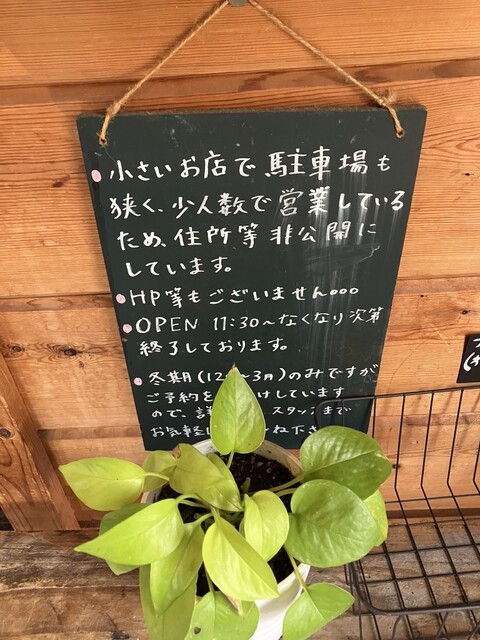 小さいお店で、駐車場も
狭く、少人数で営業している
ため、住所等非公開に
しています。
HP等もございません。。。
OPEN 11:30〜なくなり次第
終了しております。
冬期(12〜3月)のみですが
ご予約を けしています
ので、 スタッフまで
お気軽に ね下さ